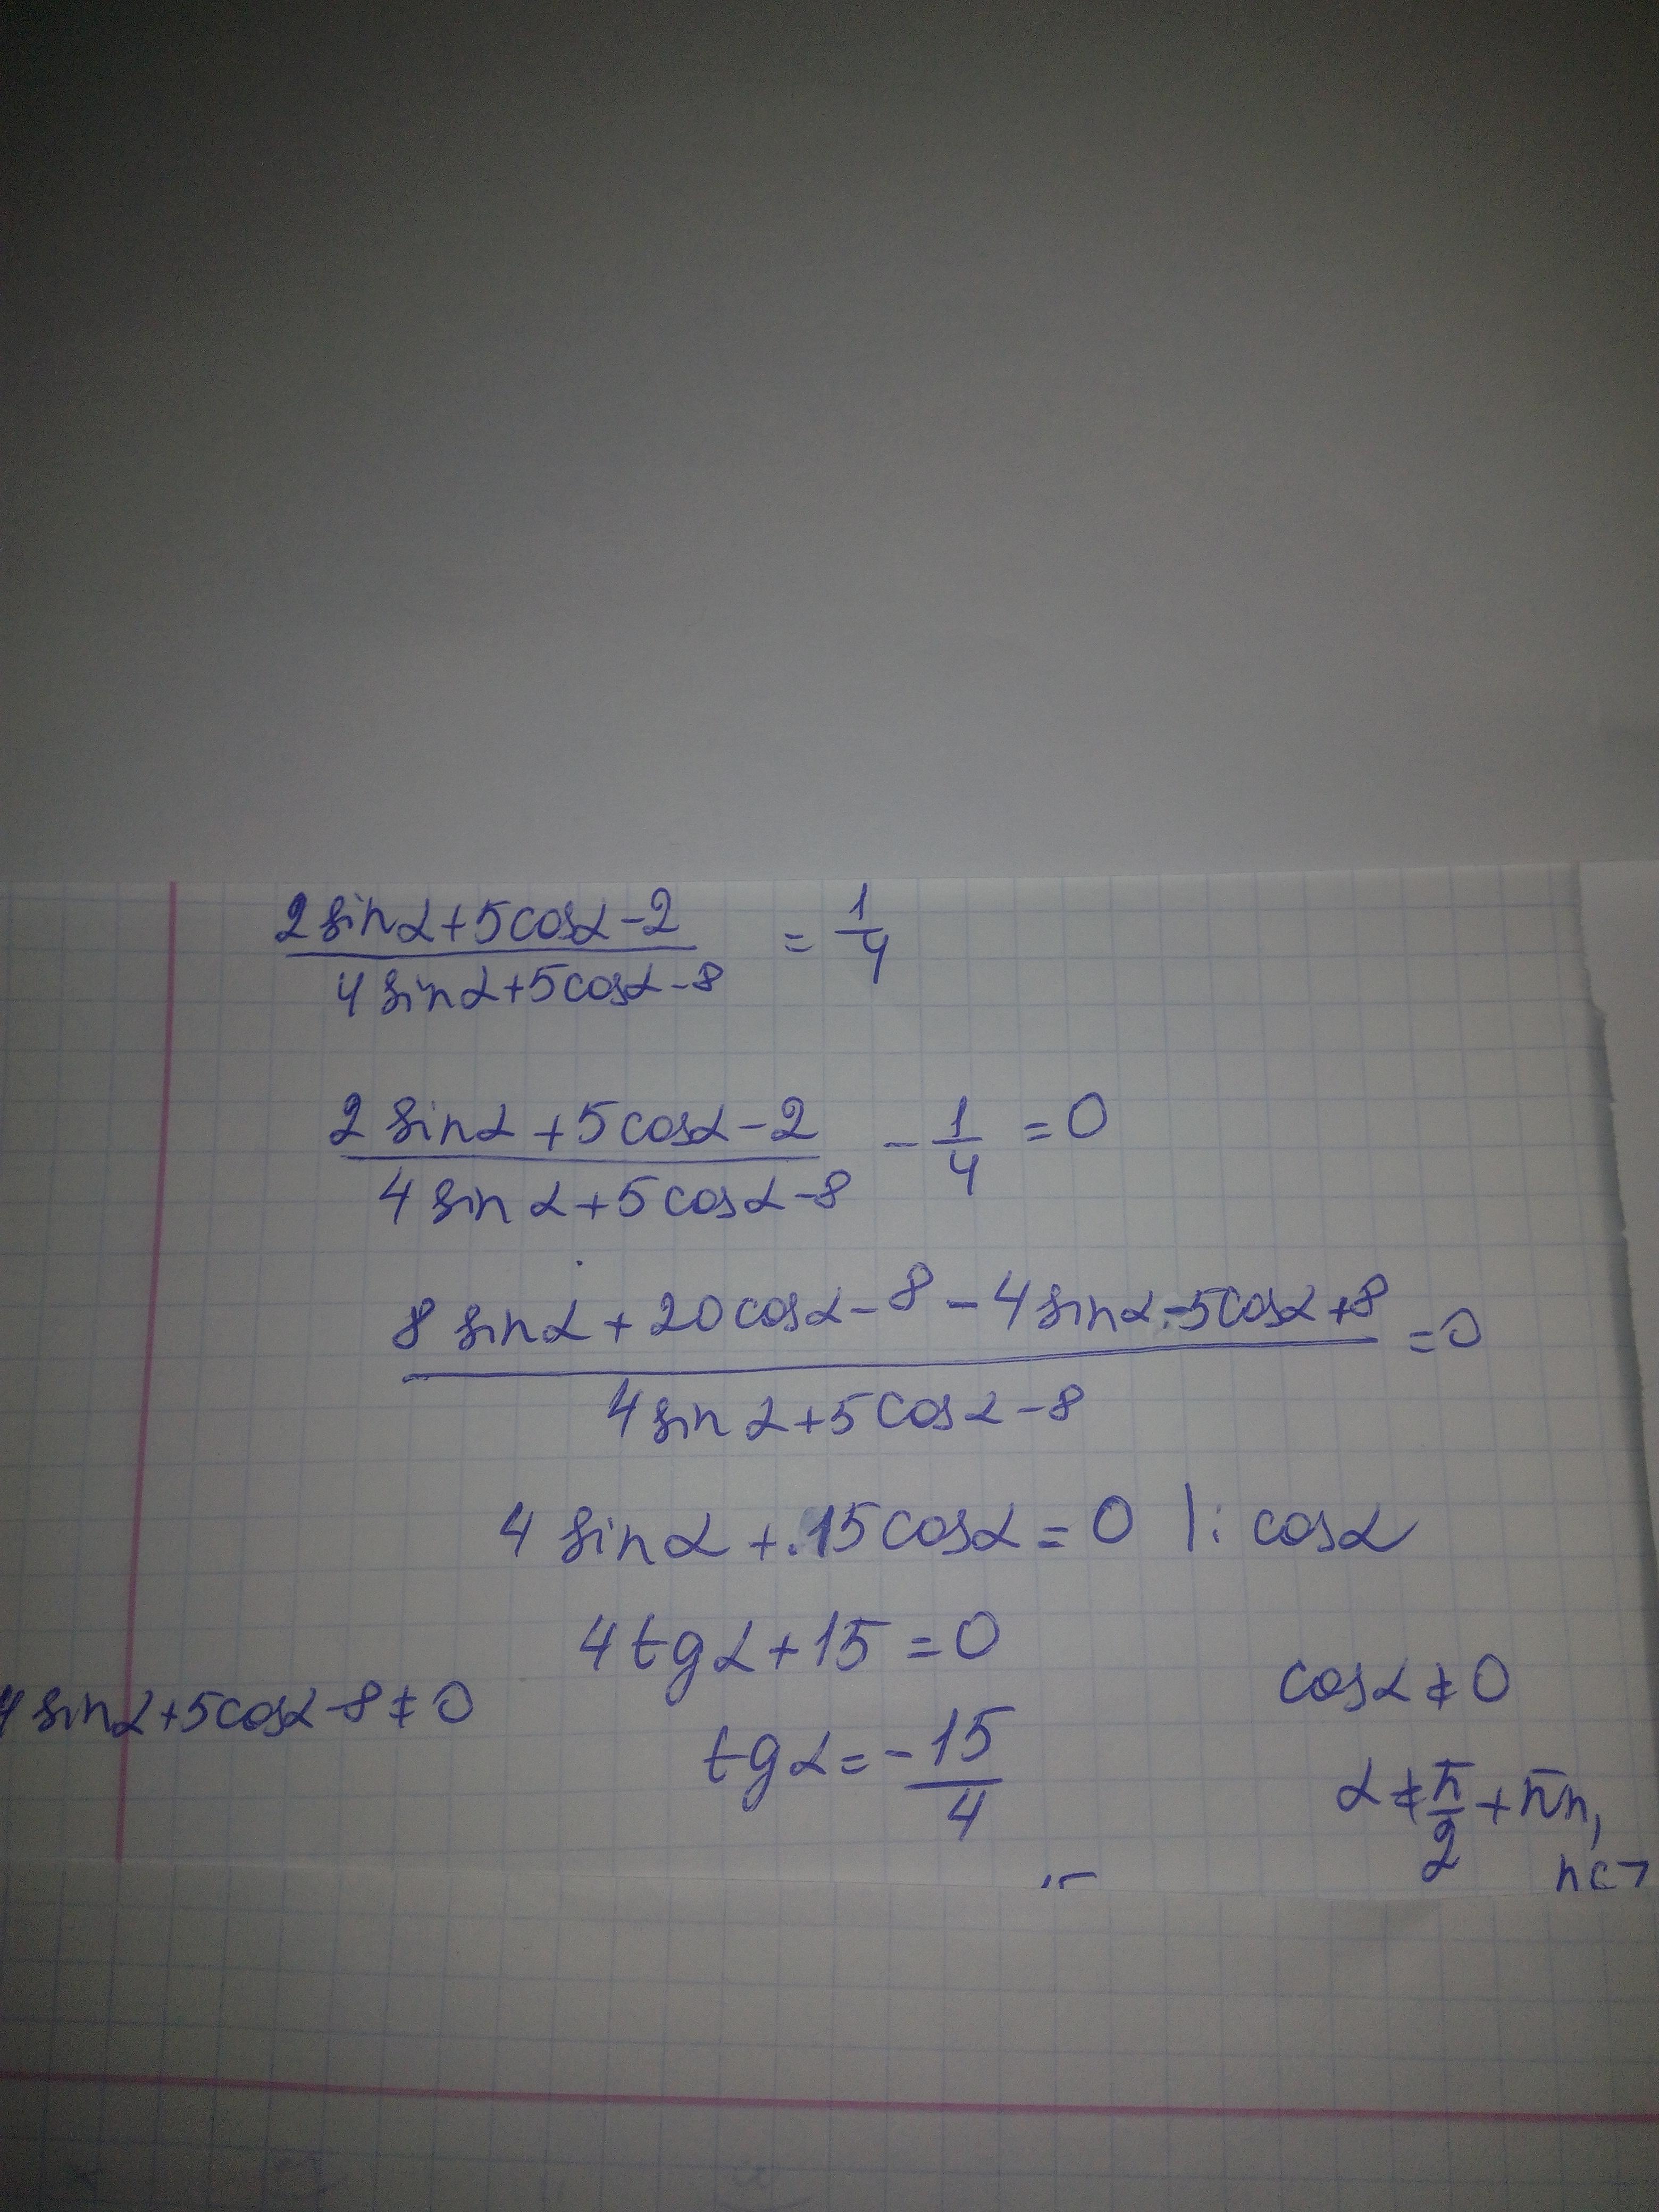 2 sinα+5cosα-2 / 4 sinα+5cosα-8 = 1/4
2 sinα+5cosα-2 / 4 sinα+5cosα-8 - 1/4 = 0
8 sinα+20cosα-8-4sinα-5cosα+8 / 4sinα+5cosα-8 = 0
4 sinα+15cosα=0 |: cosα
4tgα+15=0
4 sinα+5cosα-8≠0
cosα≠0
tgα=-15/4
α≠π/2+πn,